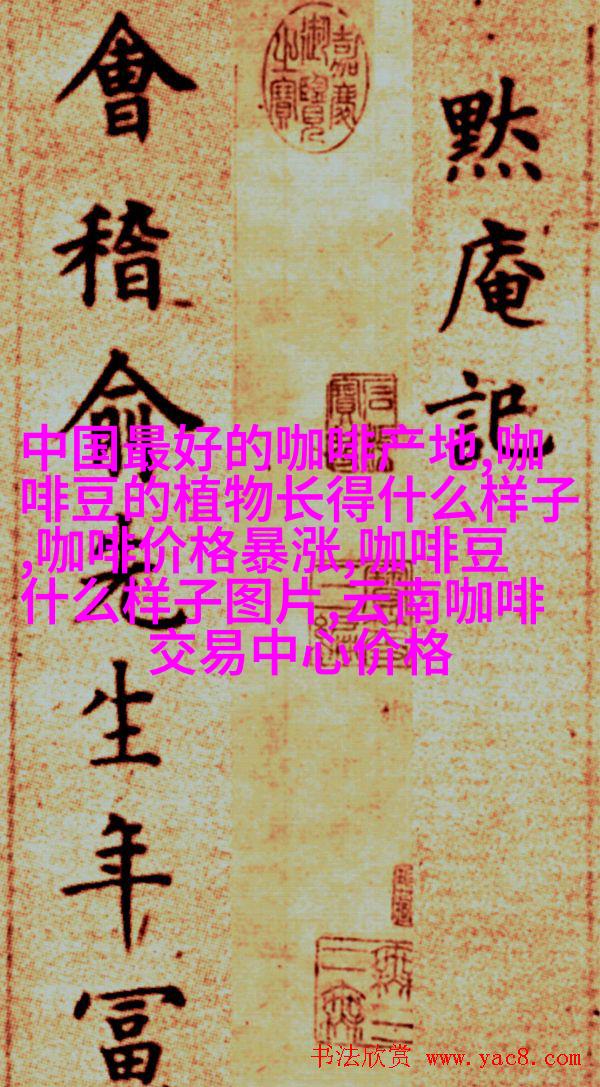 黙庵記
嘉慶御覽之寶
會稽俞先生年冨
中国最好的咖啡产地,咖
啡豆的植物长得什么样子
,咖啡价格暴涨,咖啡豆
什么样子图片,云南咖啡
交易中心价格
书法欣赏 www.yac8.com